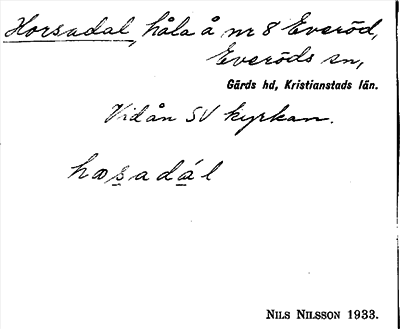 Horsadal, håla å nr 8 Everöd,
Everöds sn,
Gärds hd, Kristianstads län.
Vid ån SV kyrkan.
hɷs̱adá̱l
NILS NILSSON 1933.